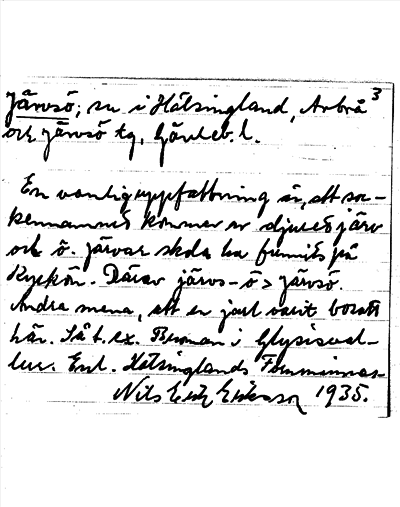 Järvsö; sn i Hälsingland, Arbrå 3
och Järvsö tg, Gävleb. l.
En vanlig uppfattning är, att soc-
kennamnet kommer av djuret järv
och ö. Järvar skola ha funnits på
Kyrkön. Därav järvs-ö > Järvsö.
Andra mena, att en jarl varit bosatt
här. Så t. ex. Broman i Glysisval-
lur. Enl. Hälsinglands Fornminnes-
Nils Erik Eriksson 1935.